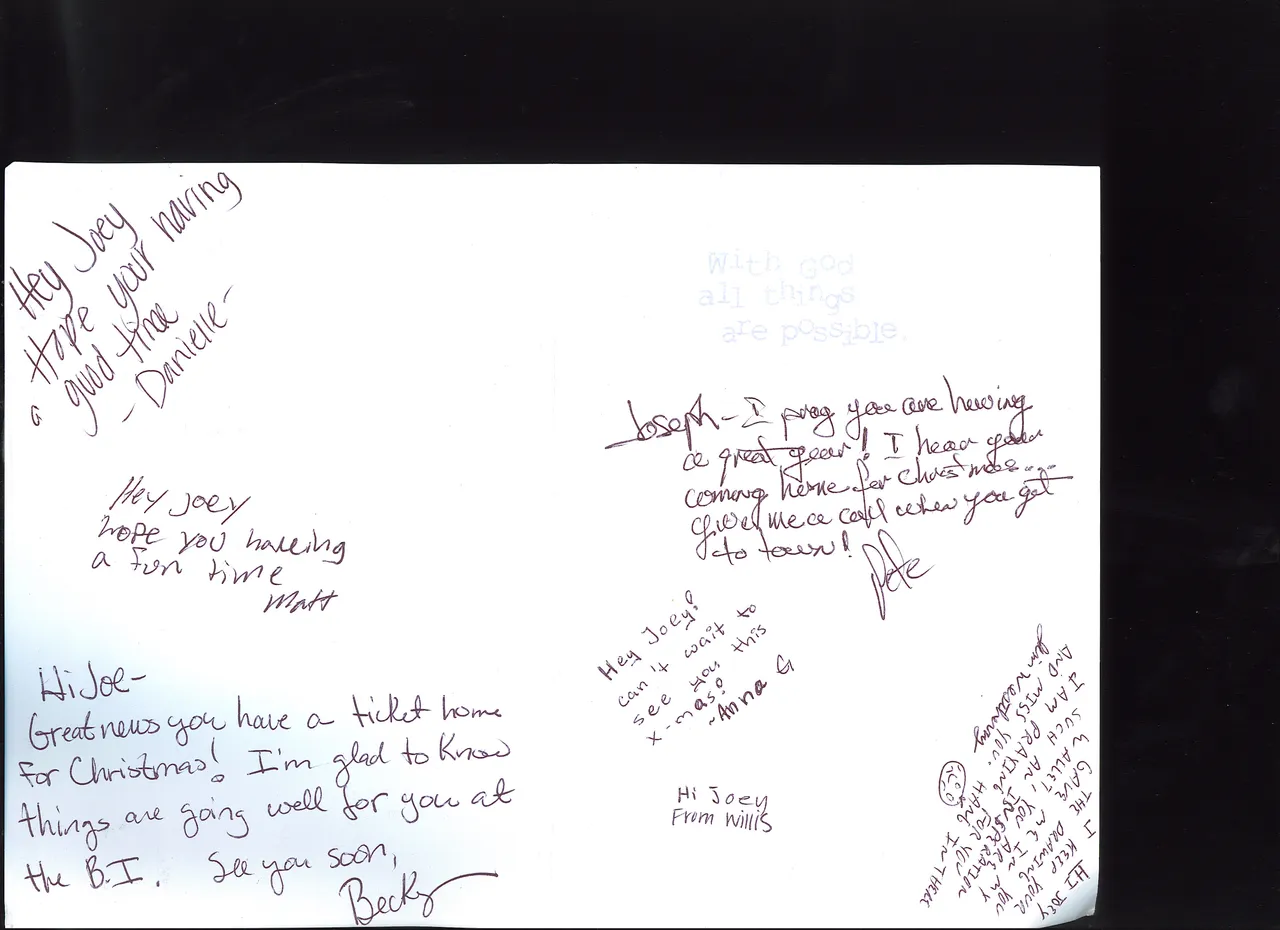 Hey Joey
Hope your having
a good time
- Danielle -
With God
all things
are possible.
Joseph - I pray you are having
a great year! I hear your
coming home for Christmas....
give me a call when you get
to town!
Pete
Hey Joey
hope you haveing
a fun time
Matt
Hey Joey!
can't wait to
see you this
x-mas!
~Anna G
Hi Joe-
Great news you have a ticket home
for Christmas! I'm glad to know
things are going well for you at
the B.I. See you soon,
Becky
Hi Joey
From Willis
HI JOEY
I KEEP YOUR
THE DRAWING YOU
GAVE ME IN MY
WALLET, YOU ARE
SUCH AN INSPERATION
I AM PRAYING FOR YOU
AND MISS YOU. HANG IN THERE
Jim